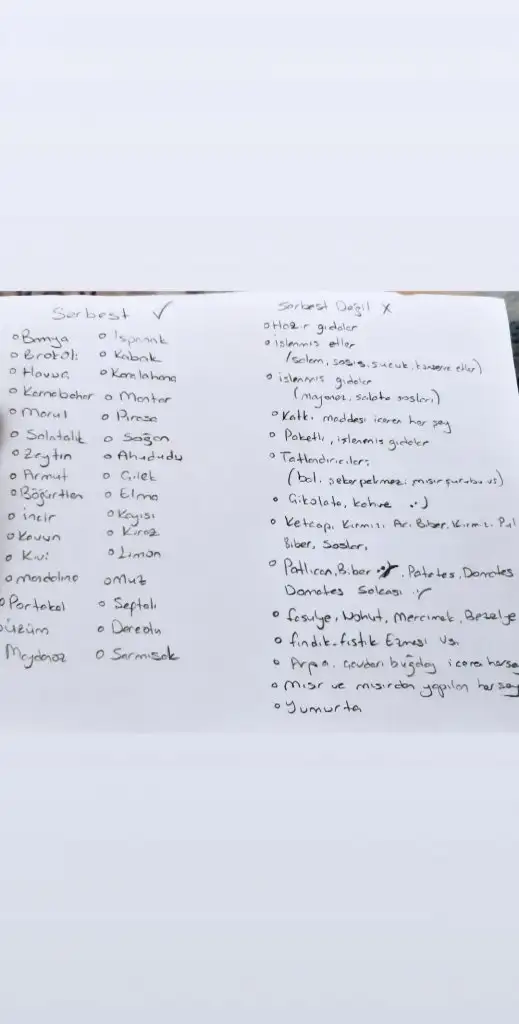 Serbest ✓
o Bamya
o Brokoli
o Havuç
o Karnebahar
o Marul
o Salatalık
o Zeytin
o Armut
o Böğürtlen
o incir
o Kavun
o Kivi
o mandalina
o Portakal
o üzüm
Maydanoz
o Ispanak
o Kabak
o Karalahana
o Mantar
o Pırasa
o Soğan
o Ahududu
o Çilek
o Elma
o Kayısı
o Kiraz
o Limon
o Muz
o Şeftali
o Dereotu
o Sarmısak
Serbest Değil X
o Hazır gıdalar
o işlenmiş etler
(salam, sosis, sucuk, konserve etler)
o işlenmiş gıdalar
(mayonez, salata sosları)
o Katkı maddesi içeren her şey
o Paketli, işlenmiş gıdalar
o Tatlandırıcılar;
(bal, şeker pekmezi, mısır şurubu vs)
o Çikolata, kahve :)
o Ketçap, Kırmızı Acı Biber, Kırmızı Pul
Biber, Soslar,
o Patlıcan, Biber, Patates, Domates
Domates Salçası
o fasulye, Nohut, Mercimek, Bezelye
o fındık-fıstık Ezmesi vs.
o Arpa, Çavdar, buğday içeren herşey
o mısır ve mısırdan yapılan her şey
o Yumurta